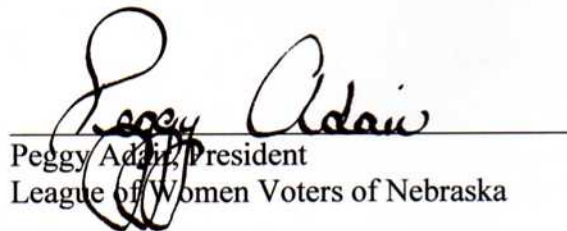 Peggy Adair
Peggy Adair, President
League of Women Voters of Nebraska